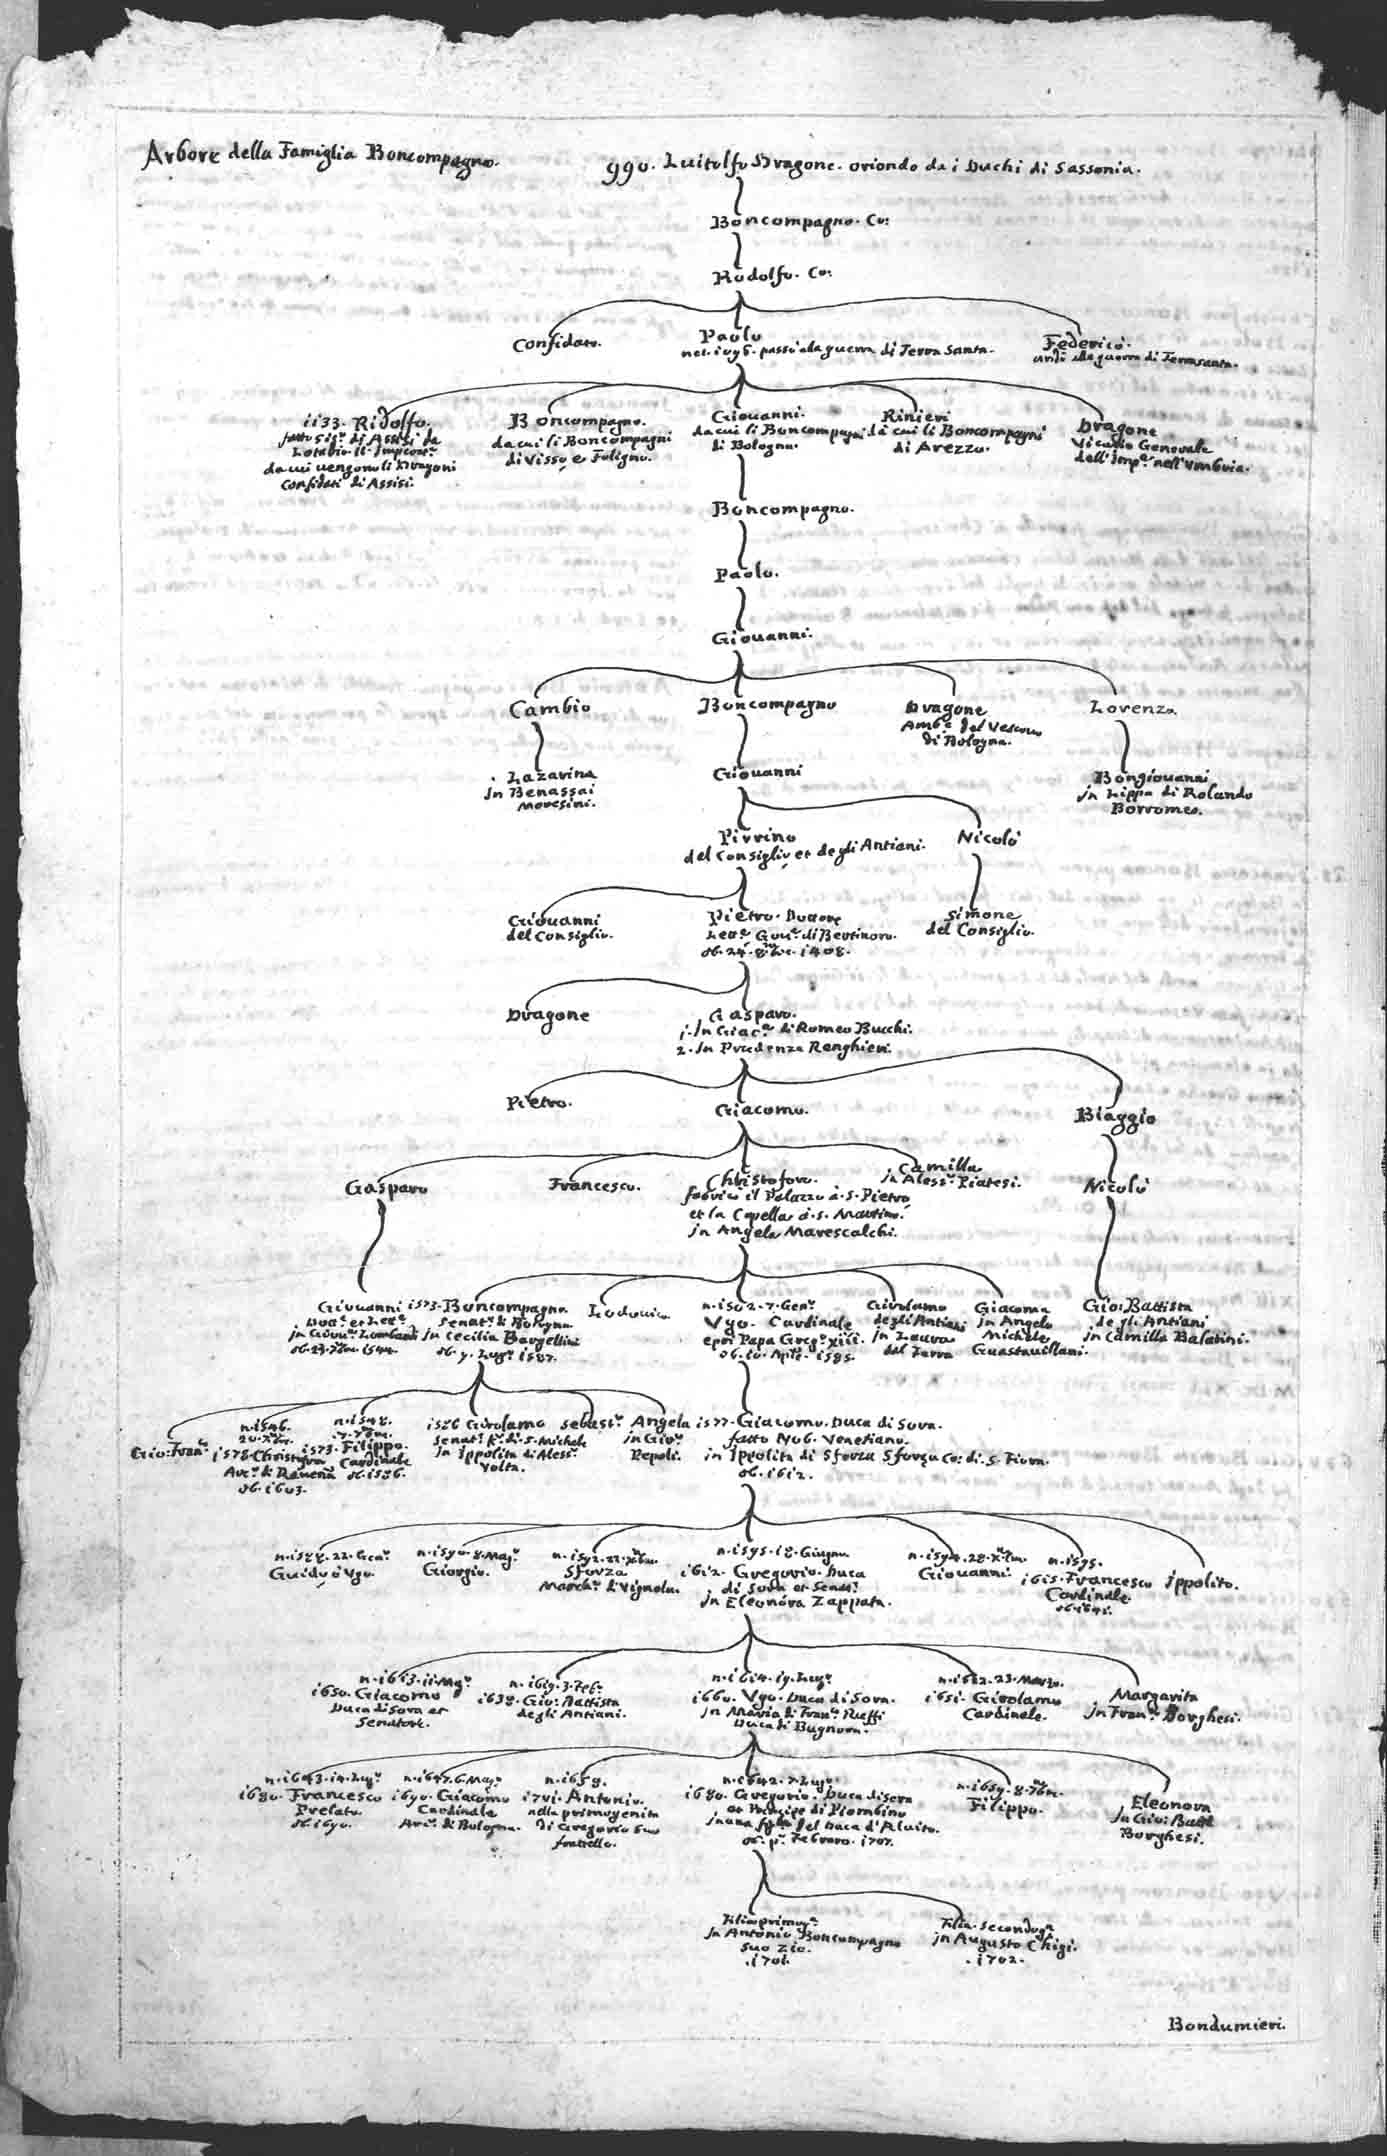 Arbore della Famiglia Boncompagno.
990. Luitolfo Dragone. oriondo da i Duchi di Sassonia.
Boncompagno. Co:
Rodolfo. Co:
Confidato.
Paolo
nel. 1096. passò alla guerra di Terra Santa.
Federico.
andò alla guerra di Terrasanta.
1133. Ridolfo.
fatto Sigr. di Assisi da
Lotario II. Imperat.
da cui vengono li Dragoni
Confidati di Assisi.
Boncompagno.
da cui li Boncompagni
di Visso e Foligno.
Giovanni.
da cui li Boncompagni
di Bologna.
Rinieri
da cui li Boncompagni
di Arezzo.
Dragone
Vicario Generale
dell'Impe. nell'Umbria.
Boncompagno.
Paolo.
Giouanni.
Cambio
Boncompagno
Dragone
Ambe. del Vescovo
di Bologna.
Lorenzo.
Lazarina
in Benassai
Moresini.
Giouanni
Bongiouanni
in Lippa di Rolando
Borromeo.
Pirrino
del Consiglio et degli Antiani.
Nicolò
Giouanni
del Consiglio.
Pietro. Dottore
Lette. Goue. di Bertinoro.
ob. 24. 8bre. 1408.
Simone
del Consiglio.
Dragone
Gasparo.
1. In Giaca. di Romeo Bucchi.
2. In Prudenza Renghieri.
Pietro.
Giacomo.
Biaggio
Gasparo
Francesco.
Christoforo.
fabricò il Palazzo à S. Pietro
et la Capella à S. Martino.
in Angela Marescalchi.
Camilla
in Aless. Piatesi.
Nicolò
Giouanni
Dotr. et Lettr.
ob. 23. 7bre. 1544.
1573. Boncompagno
Senatr. di Bologna
in Cecilia Bargellini
ob. 9. Lugo. 1587.
Lodovico
n. 1502. 7. Genr.
Vgo. Cardinale
e poi Papa Grego. XIII.
ob. 10. Aple. 1585.
Girolamo
degli Antiani
in Laura
del Ferro
Giacoma
in Angelo
Michele
Guastauillani.
Gio: Battista
degli Antiani
in Camilla Balatini.
Gio: Frano.
n. 1546.
1578. Christoforo
Arco. di Ravena
ob. 1603.
n. 1548.
1573. Filippo.
Cardinale
ob. 1586.
1586 Girolamo
Senatr. Kr. di S. Michele
in Ippolita di Aless.
Volta.
Sebasto.
Angela
in Gio.
Pepoli.
1577. Giacomo. Duca di Sora.
fatto Nob. Venetiano.
in Ippolita di Sforza Sforza Co: di S. Fiora.
ob. 1612.
n. 1588. 22. Gena.
Guido ò Vgo.
n. 1590. 8. Mago.
Giorgio.
Sforza
March. di Vignola.
n. 1595. 18. Giugno
1612. Gregorio. Duca
di Sora et Senatr.
in Eleonóra Zappata.
n. 1594. 28. Xbre.
Giouanni.
n. 1595.
1615. Francesco
Cardinale.
ob. 1641.
Ippolito.
n. 1613. 11. Mago.
1650. Giacomo
Duca di Sora et
Senatore.
n. 1619. 3. Feb.
1638. Gio: Battista
degli Antiani.
n. 1614. 19. Lugo.
1660. Vgo. Duca di Sora.
in Maria di Frano. Ruffi
Duca di Bagnara.
n. 1622. 23. Marzo.
1651. Girolamo
Cardinale.
Margarita
in Frano. Borghesi.
n. 1643. 14. Lugo.
1680. Francesco
Prelato.
ob. 1690.
n. 1647. 6. Mago.
1690. Giacomo
Cardinale
Arco. di Bologna.
n. 1658.
1701. Antonio.
nella primogenita
di Gregorio suo
fratello.
n. 1642. 7. Lugo.
1680. Gregorio. Duca di Sora
et Principe di Piombino
ob. po. Febraro. 1707.
n. 1659. 8. 7bre.
Filippo.
Eleonora
in Gio: Batta
Borghesi.
Filia primoga.
in Antonio Boncompagno
suo zio.
.1701.
Filia. secondoga.
in Augusto Chigi.
.1702.
Bondumieri.